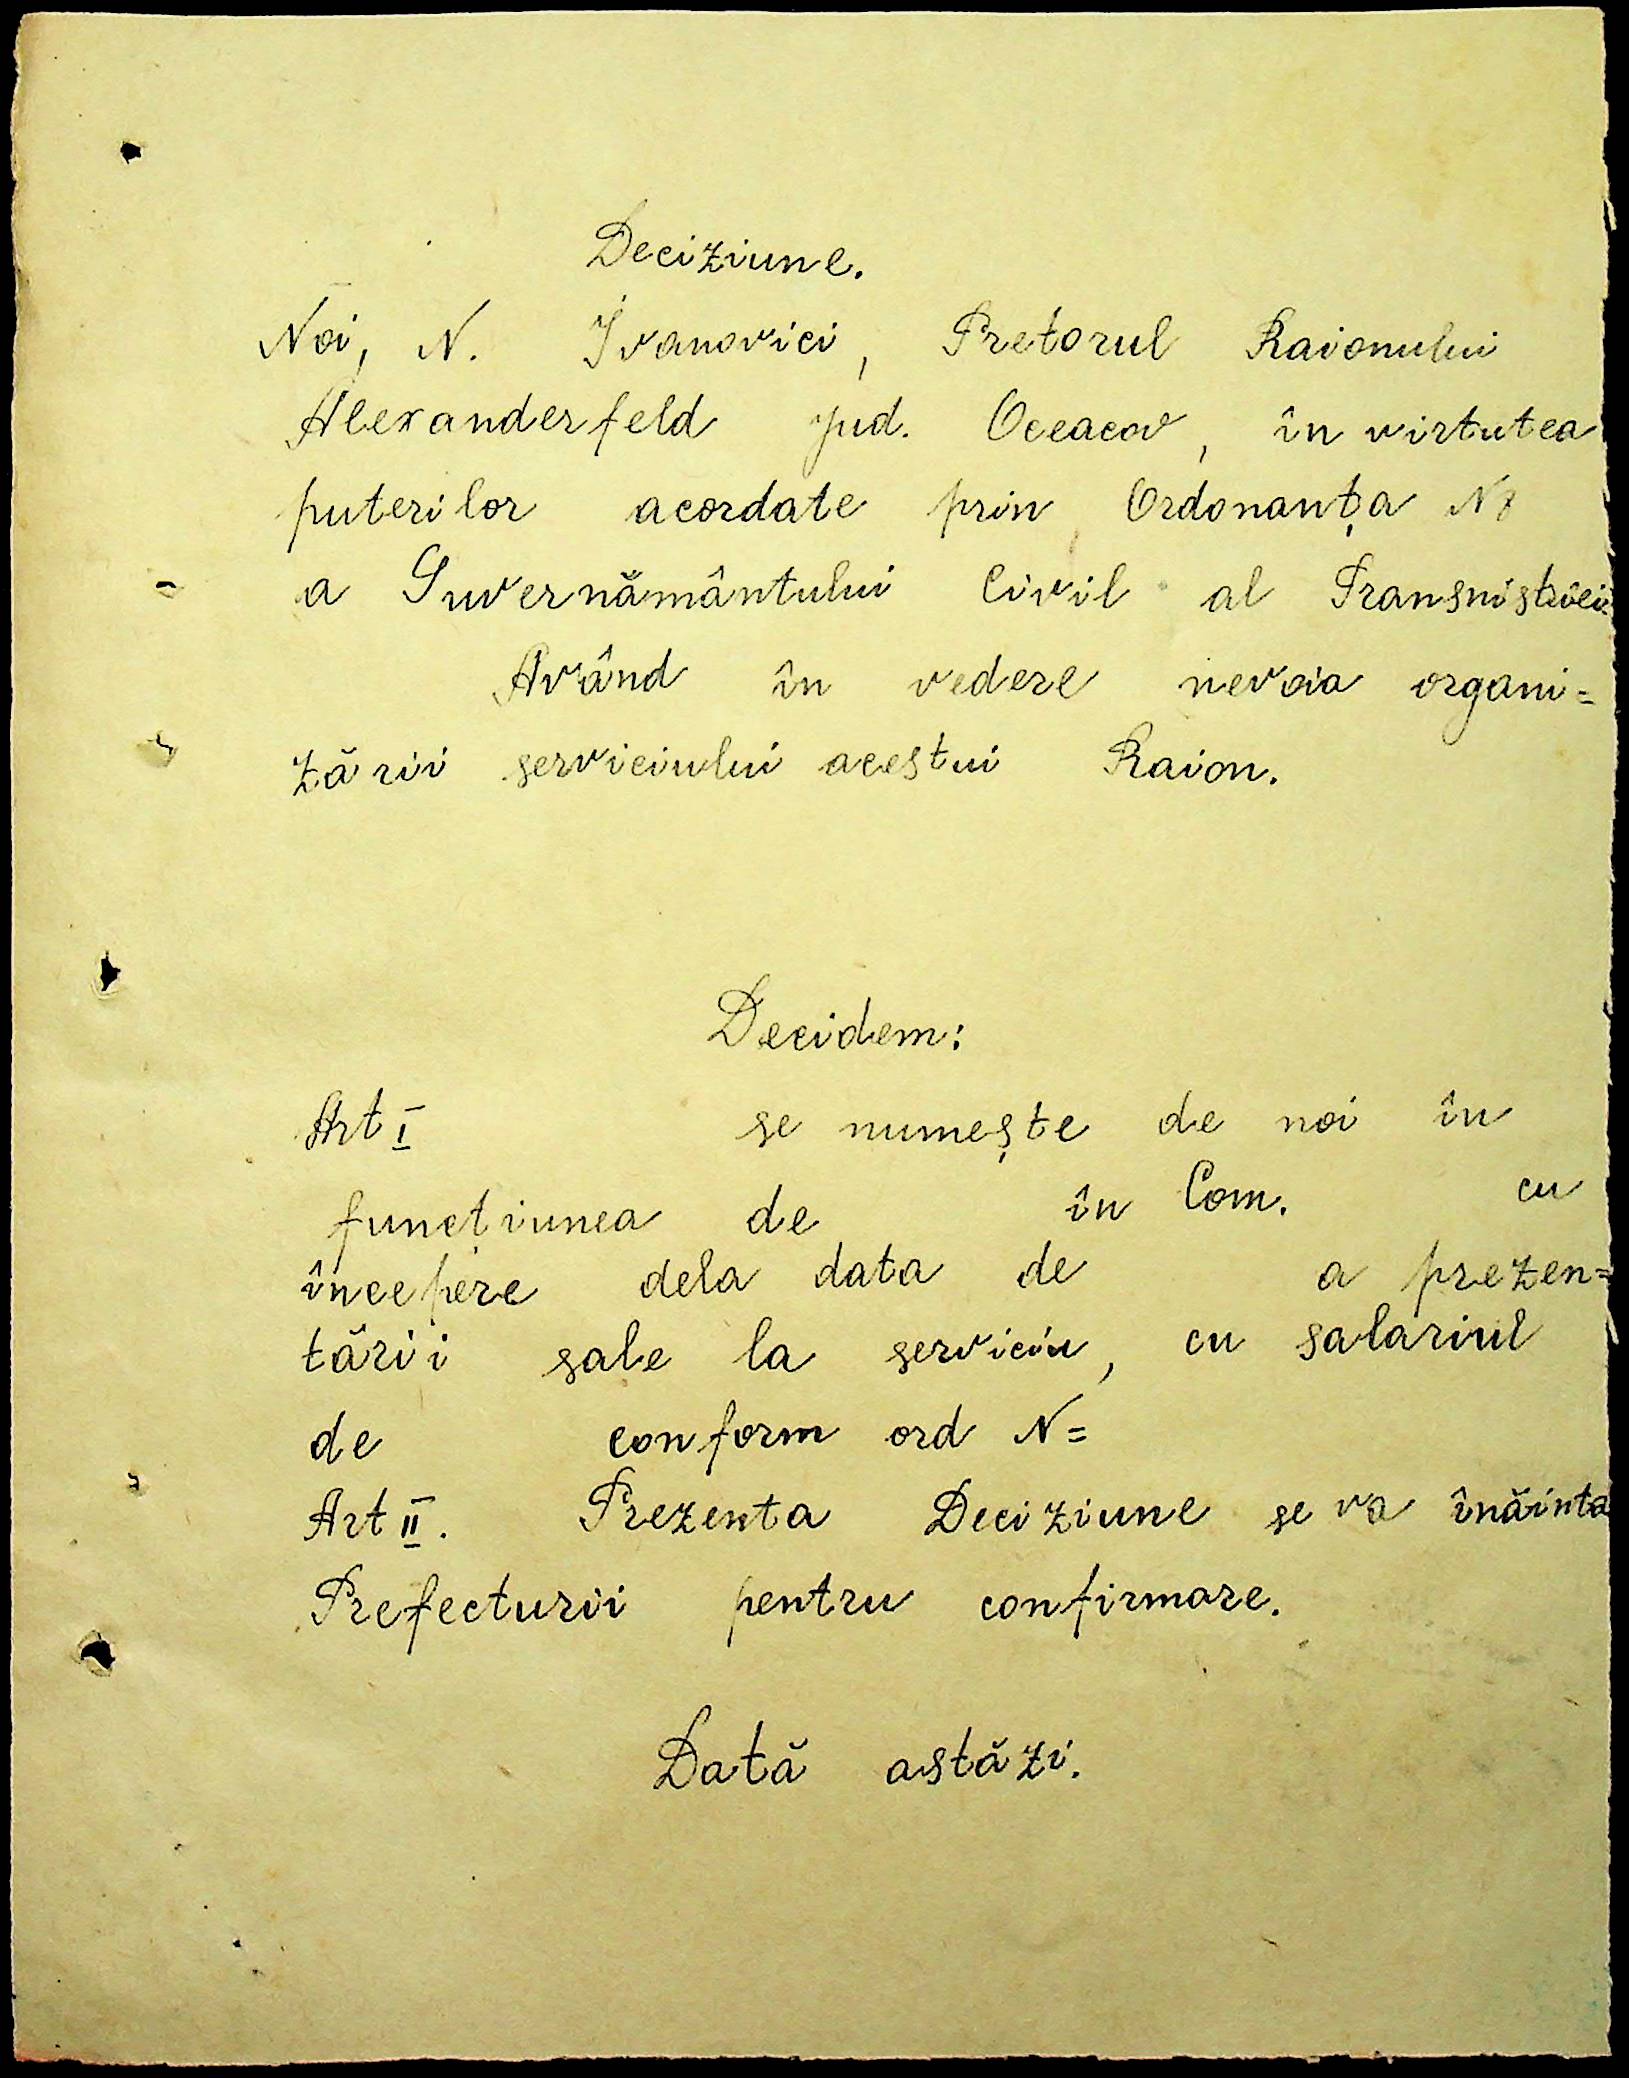 Deciziune.
Noi, N. Ivanovici, Pretorul Raionului
Alexanderfeld jud. Oceacov, în virtutea
puterilor acordate prin Ordonanța №
a Guvernământului Civil al Transnistriei
Având în vedere nevoia organi=
zării serviciului acestui Raion.
Decidem:
Art I se numește de noi în
funcțiunea de în Com. cu
începere dela data de a prezen=
tării sale la serviciu, cu salariul
de conform ord N=
Art II. Prezenta Deciziune se va înăinta
Prefecturii pentru confirmare.
Dată astăzi.